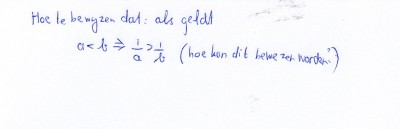 Hoe te bewyzen dat: als geldt
a < b ⇒ 1/a > 1/b (hoe kan dit bewezen worden?)